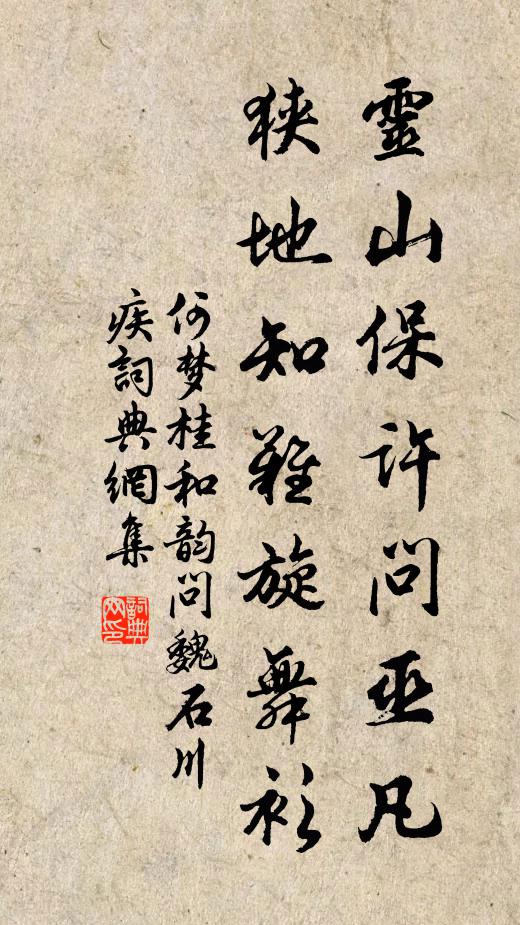 靈山保許問巫凡
狹地知難旋舞衫
何梦桂和韵问魏石川
疾詞典網集
詞典网印